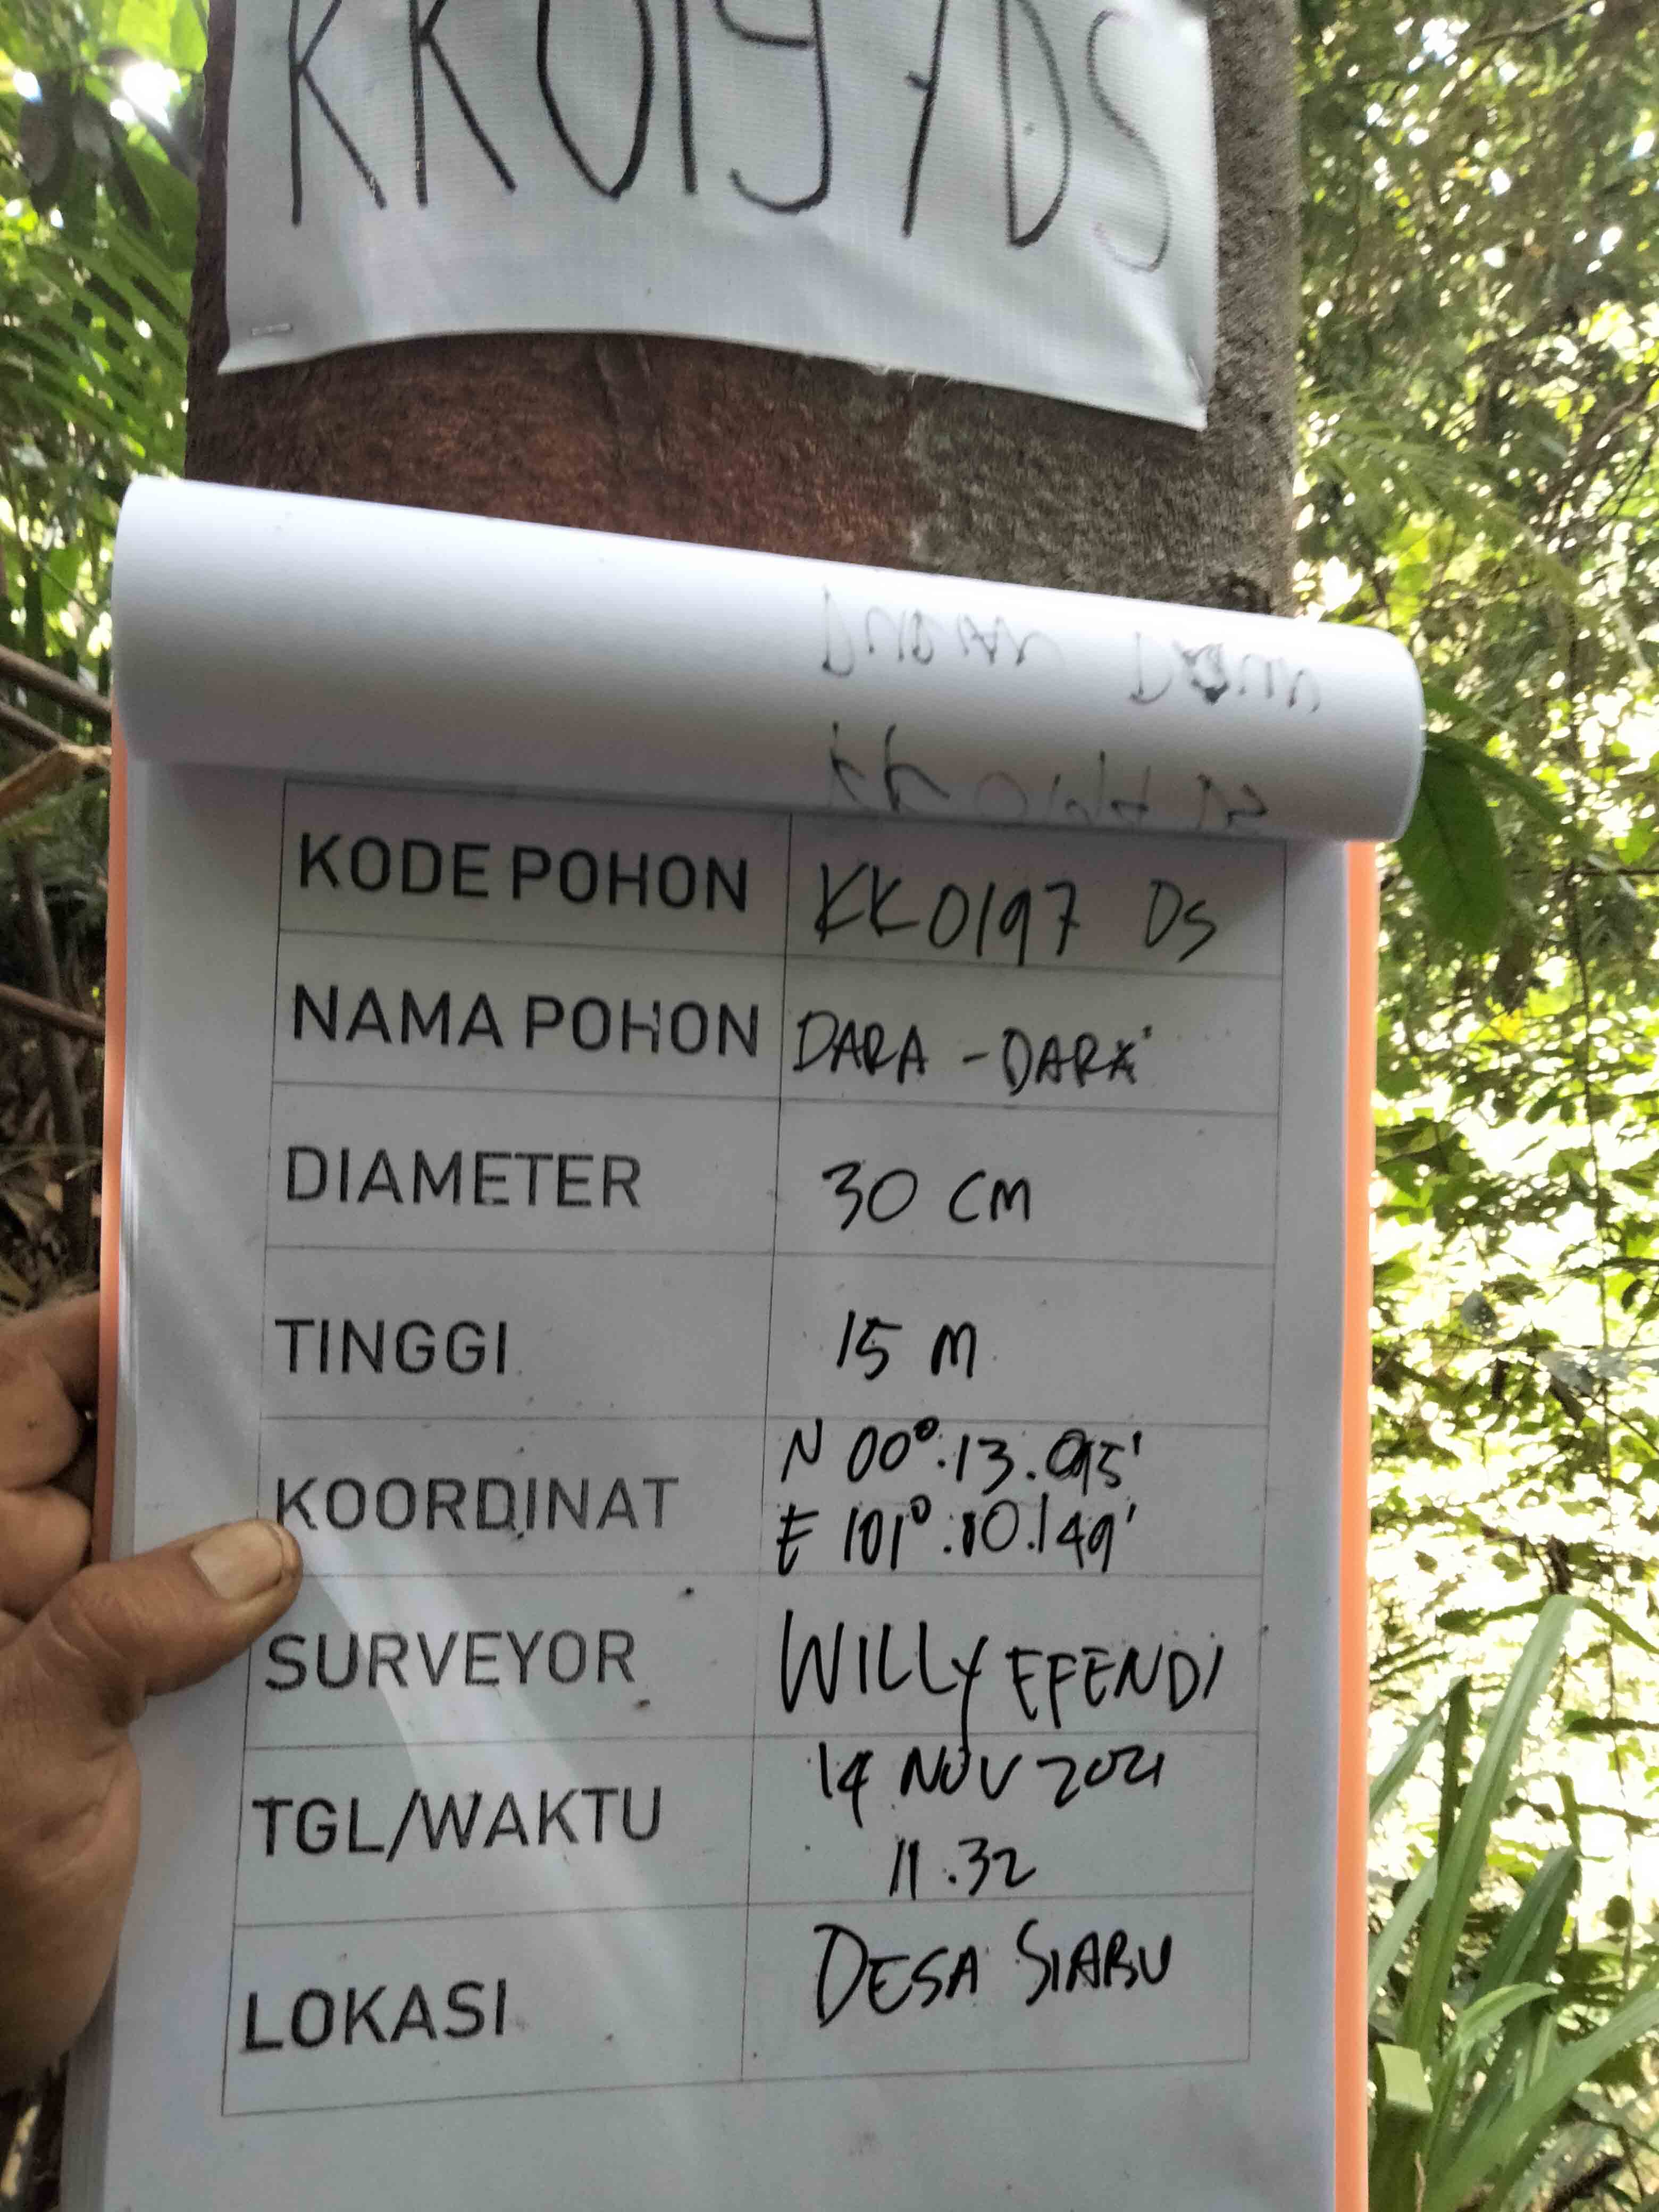 KK0197DS
KODE POHON KK0197 DS
NAMA POHON DARA - DARA
DIAMETER 30 CM
TINGGI 15 M
KOORDINAT N 00°.13.095'
E 101°.10.149'
SURVEYOR WILLY EFENDI
TGL/WAKTU 14 NOV 2021
11.32
LOKASI DESA SIABU